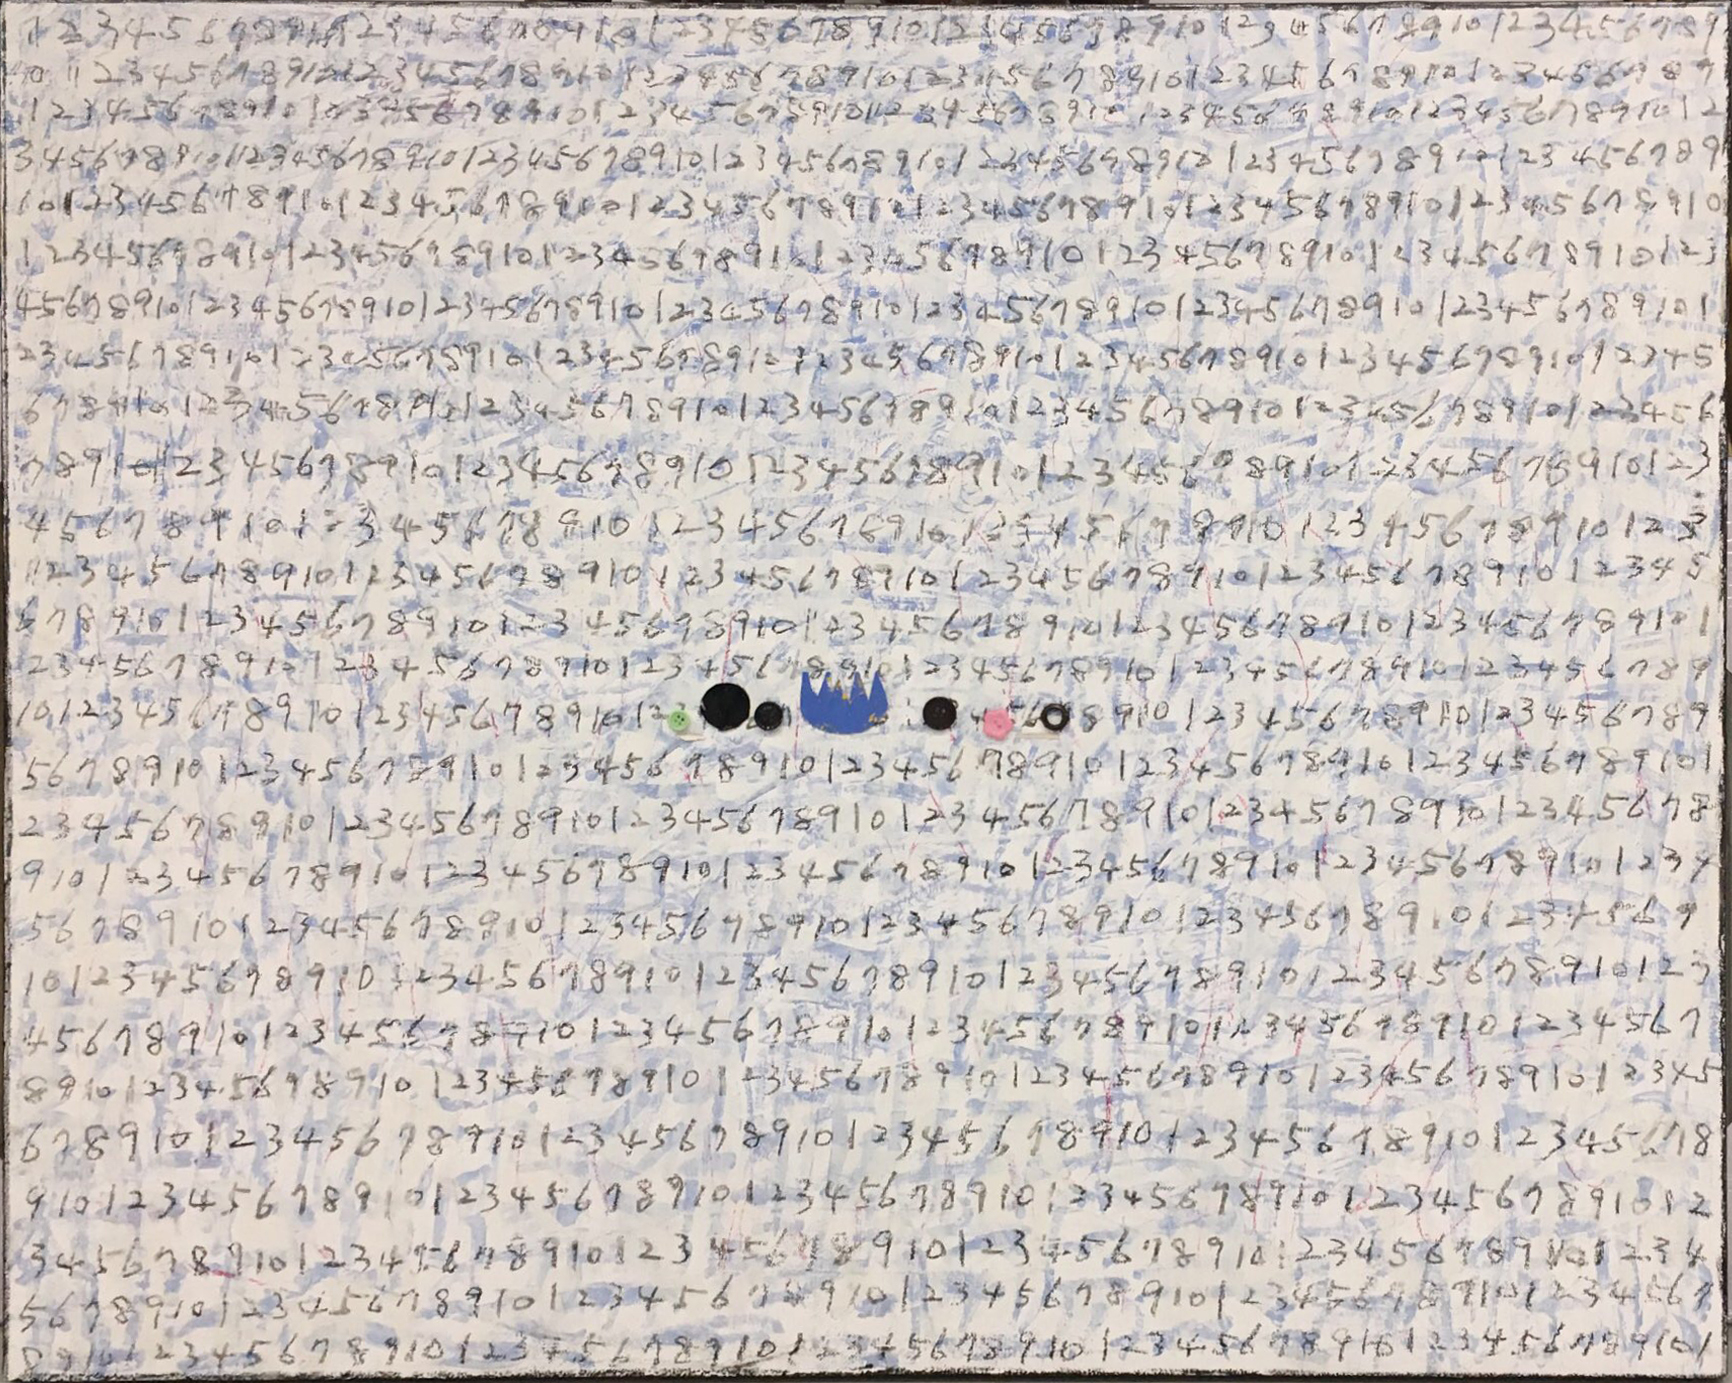 1234567891012345678910123456789101234567891012345678910123456789
101234567891012345678910123456789101234567891012345678910123456789
12345678910123456789101234567891012345678910123456789101234567891012
345678910123456789101234567891012345678910123456789101234567891​0123456789
10123456789101234567891012345678910123456789101234567891012345678910
123456789101234567891012345678910123456789101234567891012345678910123
456789101234567891012345678910123456789101234567891012345678910123456789101
2345678910123456789101234567891012345678910123456789101234567891012345
6789101234567891012345678910123456789101234567891012345678910123456
789101234567891012345678910123456789101234567891012345678910123
4567891012345678910123456789101234567891012345678910123
123456789101234567891012345678910123456789101234567891012345
67891012345678910123456789101234567891012345678910123456789101
234567891012345678910123456789101234567891012345678910123456789
101234567891012345678910123 56 891012345678910123456789
567891012345678910123456789101234567891012345678910123456789101
23456789101234567891012345678910123456789101234567891012345678
91012345678910123456789101234567891012345678910123456789101234
5678910123456789101234567891012345678910123456789101234567
10123456789101234567891012345678910123456789101234567891​0123
456789101234567891012345678910123456789101234567891​01234567
89101234567891012345678910123456789101234567891012345678910​12345
6789101234567891012345678910123456789101234567891012345678
91012345678910123456789101234567891012345678910123456789101​2
34567891012345678910123456789101234567891012345678910​1234
56789101234567891012345678910123456789101234567891​01234567
891012345678910123456789101234567891012345678910123456789101